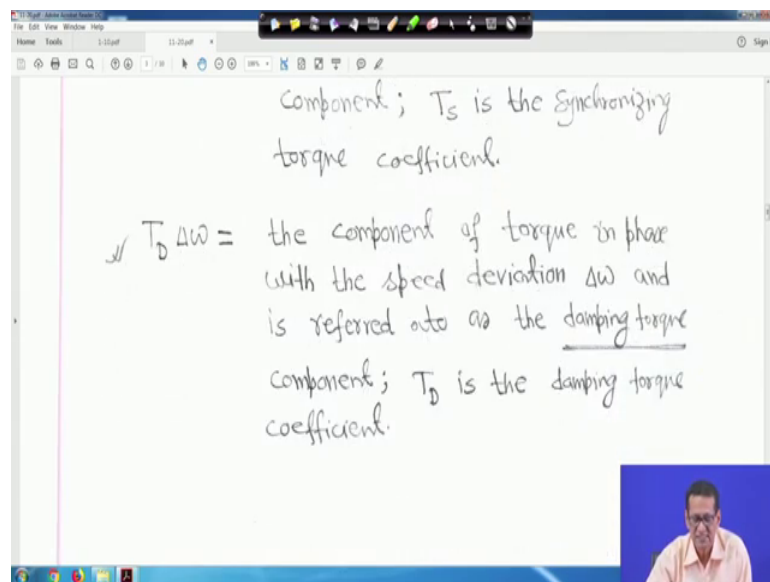 11-20.pdf - Adobe Acrobat Reader DC
File Edit View Window Help
Home Tools 1-10.pdf 11-20.pdf × Sign
component; TS is the synchronizing
torque coefficient.
TD Δω = the component of torque in phase
with the speed deviation Δω and
is referred to as the damping torque
component; TD is the damping torque
coefficient.